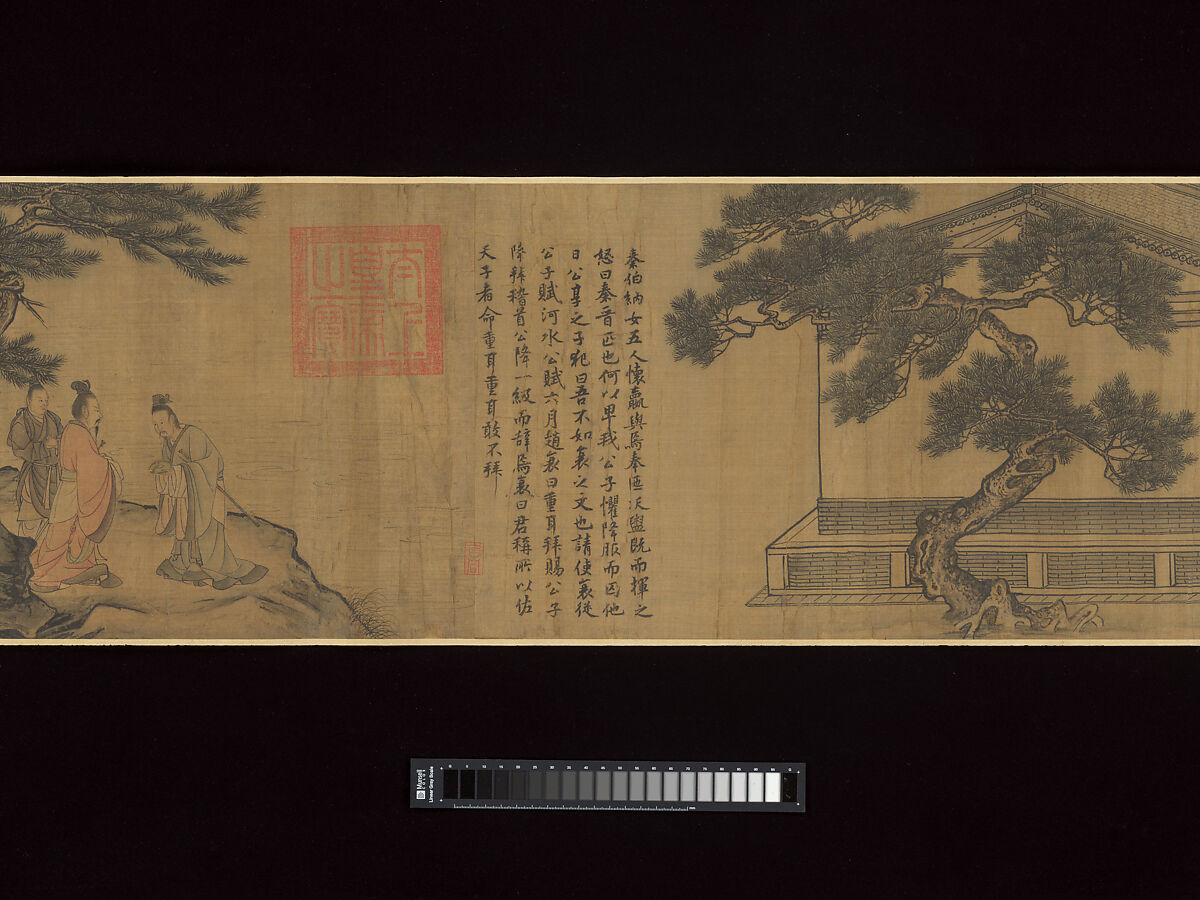 秦伯納女五人懷嬴與焉奉匜沃盥既而揮之
怒曰秦晉匹也何以卑我公子懼降服而囚他
日公享之子犯曰吾不如衰之文也請使衰從
公子賦河水公賦六月趙衰曰重耳拜賜公子
降拜稽首公降一級而辭焉衰曰君稱所以佐
天子者命重耳重耳敢不拜
Munsell
Linear Grey Scale